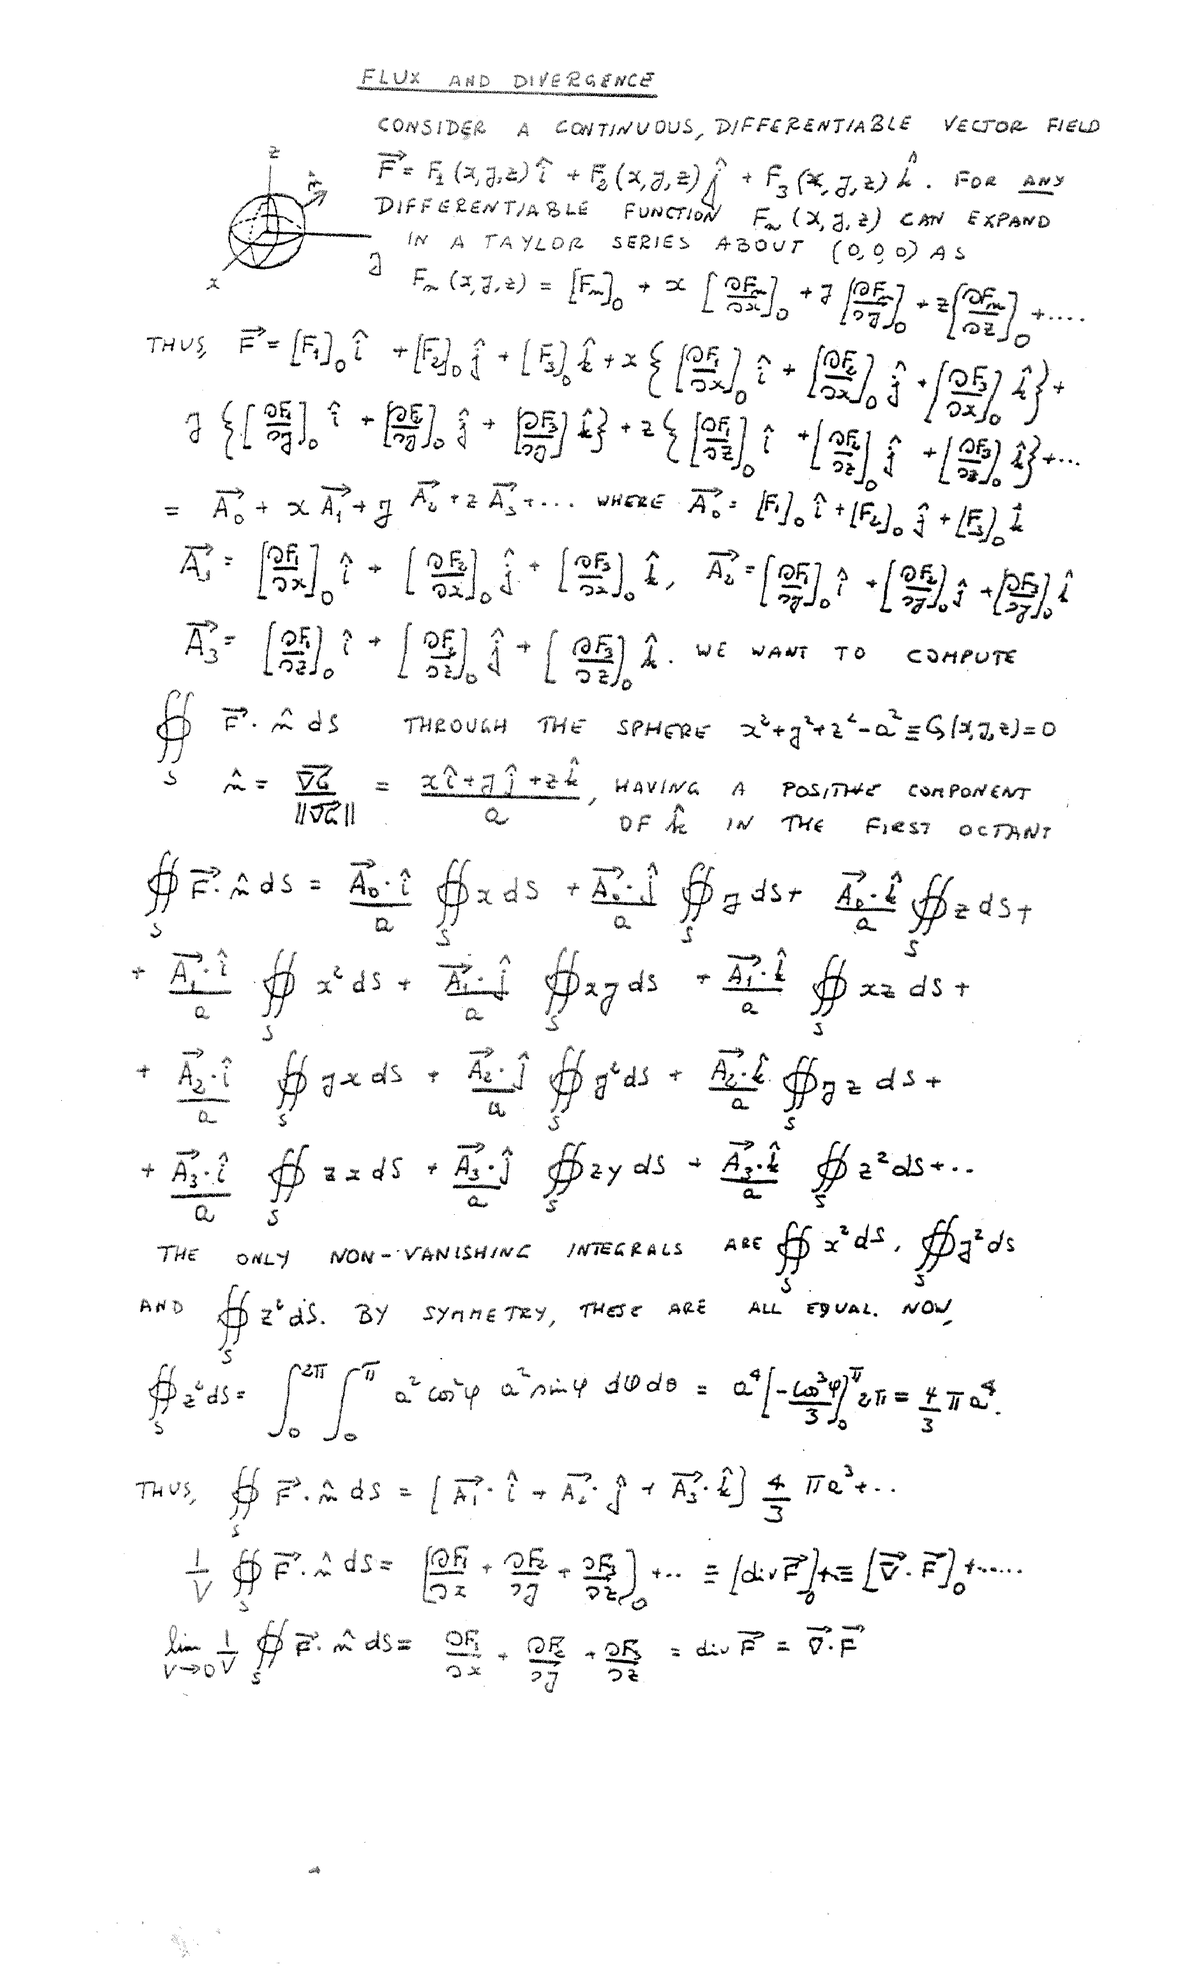 FLUX AND DIVERGENCE
CONSIDER A CONTINUOUS, DIFFERENTIABLE VECTOR FIELD
z
n̂
y
x
F⃗ = F₁(x,y,z) î + F₂(x,y,z) ĵ + F₃(x,y,z) k̂. FOR ANY
DIFFERENTIABLE FUNCTION Fₙ(x,y,z) CAN EXPAND
IN A TAYLOR SERIES ABOUT (0,0,0) AS
Fₙ(x,y,z) = [Fₙ]₀ + x [∂Fₙ/∂x]₀ + y [∂Fₙ/∂y]₀ + z [∂Fₙ/∂z]₀ + ....
THUS, F⃗ = [F₁]₀ î + [F₂]₀ ĵ + [F₃]₀ k̂ + x { [∂F₁/∂x]₀ î + [∂F₂/∂x]₀ ĵ + [∂F₃/∂x]₀ k̂ } +
y { [∂F₁/∂y]₀ î + [∂F₂/∂y]₀ ĵ + [∂F₃/∂y]₀ k̂ } + z { [∂F₁/∂z]₀ î + [∂F₂/∂z]₀ ĵ + [∂F₃/∂z]₀ k̂ } + ...
= A⃗₀ + x A⃗₁ + y A⃗₂ + z A⃗₃ + ... WHERE A⃗₀ = [F₁]₀ î + [F₂]₀ ĵ + [F₃]₀ k̂
A⃗₁ = [∂F₁/∂x]₀ î + [∂F₂/∂x]₀ ĵ + [∂F₃/∂x]₀ k̂, A⃗₂ = [∂F₁/∂y]₀ î + [∂F₂/∂y]₀ ĵ + [∂F₃/∂y]₀ k̂
A⃗₃ = [∂F₁/∂z]₀ î + [∂F₂/∂z]₀ ĵ + [∂F₃/∂z]₀ k̂. WE WANT TO COMPUTE
∯_S F⃗·n̂ dS THROUGH THE SPHERE x²+y²+z²-a² ≡ G(x,y,z) = 0
n̂ = ∇⃗G/||∇⃗G|| = (xî + yĵ + zk̂)/a, HAVING A POSITIVE COMPONENT
OF k̂ IN THE FIRST OCTANT
∯_S F⃗·n̂ dS = (A⃗₀·î)/a ∯_S x dS + (A⃗₀·ĵ)/a ∯_S y dS + (A⃗₀·k̂)/a ∯_S z dS +
+ (A⃗₁·î)/a ∯_S x² dS + (A⃗₁·ĵ)/a ∯_S xy dS + (A⃗₁·k̂)/a ∯_S xz dS +
+ (A⃗₂·î)/a ∯_S yx dS + (A⃗₂·ĵ)/a ∯_S y² dS + (A⃗₂·k̂)/a ∯_S yz dS +
+ (A⃗₃·î)/a ∯_S zx dS + (A⃗₃·ĵ)/a ∯_S zy dS + (A⃗₃·k̂)/a ∯_S z² dS + ..
THE ONLY NON-VANISHING INTEGRALS ARE ∯_S x² dS, ∯_S y² dS
AND ∯_S z² dS. BY SYMMETRY, THESE ARE ALL EQUAL. NOW,
∯_S z² dS = ∫₀^2π ∫₀^π a² cos²φ a² sinφ dφ dθ = a⁴ [-cos³φ/3]₀^π 2π = 4/3 π a⁴.
THUS, ∯_S F⃗·n̂ dS = [A⃗₁·î + A⃗₂·ĵ + A⃗₃·k̂] 4/3 πa³ + ..
1/V ∯_S F⃗·n̂ dS = [∂F₁/∂x + ∂F₂/∂y + ∂F₃/∂z]₀ + .. ≡ [div F⃗]₀ + ≡ [∇⃗·F⃗]₀ + .....
lim V→0 1/V ∯_S F⃗·n̂ dS = ∂F₁/∂x + ∂F₂/∂y + ∂F₃/∂z = div F⃗ = ∇⃗·F⃗